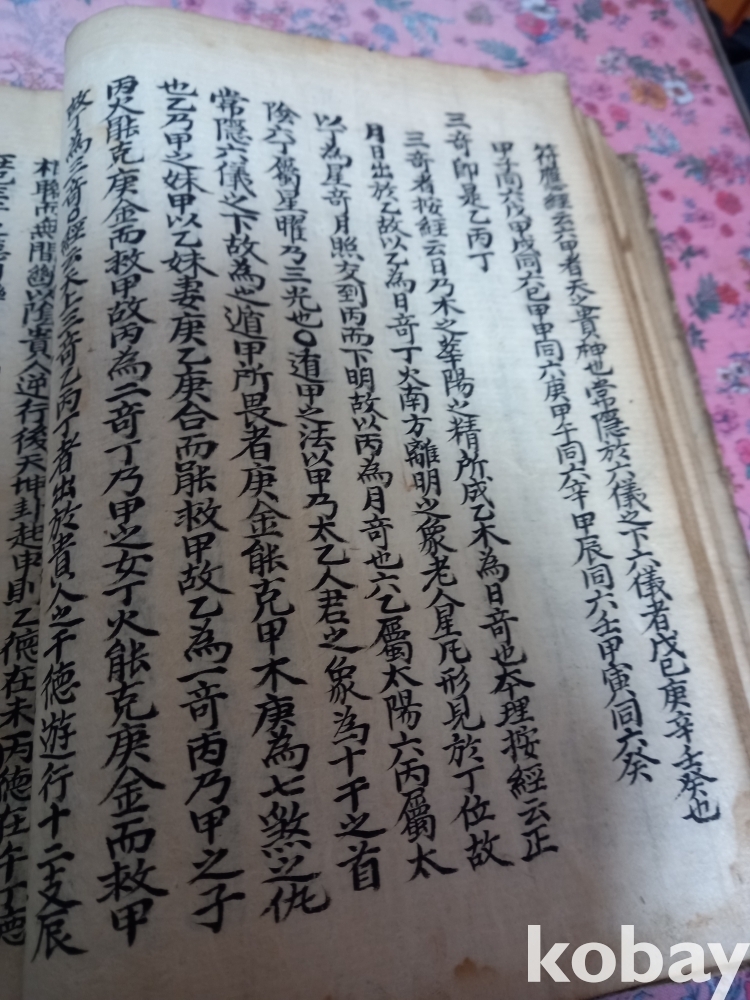 符應經云六甲者天之貴神也常隱於六儀之下六儀者戊巳庚辛壬癸也
甲子同六戊甲戌同六巳甲申同六庚甲午同六辛甲辰同六壬甲寅同六癸
三奇即是乙丙丁
三奇者按經云日乃木之華陽之精所成乙木為日奇也本理按經云正
月日出於乙故以乙為日奇丁火南方離明之象老人星凡形見於丁位故
以丁為星奇月照交到丙而下明故以丙為月奇也六乙屬太陽六丙屬太
陰六丁屬星曜乃三光也〇遁甲之法以甲乃太乙人君之象為十干之首
常隱六儀之下故為之遁甲所畏者庚金能克甲木庚為七煞之仇
也乙乃甲之妹甲以乙妹妻庚乙庚合而能救甲故乙為一奇丙乃甲之子
丙火能克庚金而救甲故丙為二奇丁乃甲之女丁火能克庚金而救甲
故丁為三奇〇經云天上三奇乙丙丁者出於貴人之干德游行十二支辰
陰貴人逆行後天坤卦起申則乙德在未丙德在午丁德